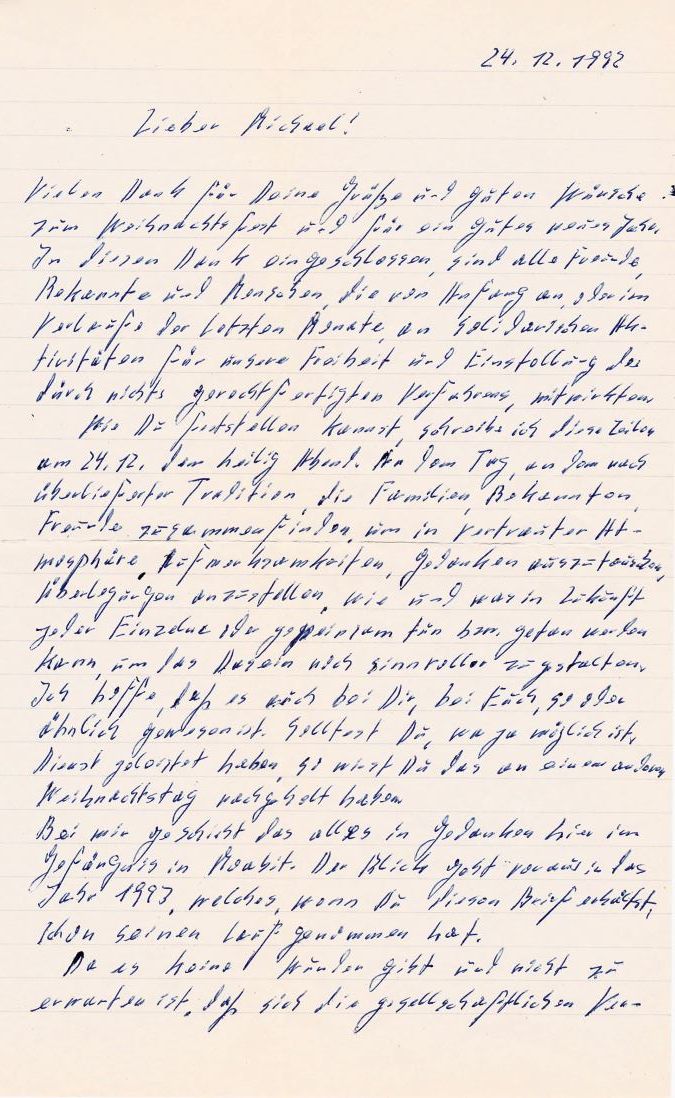 24. 12. 1992
Lieber Michael!
Vielen Dank für Deine Grüße und guten Wünsche
zum Weihnachtsfest und für ein gutes neues Jahr.
In diesen Dank eingeschlossen, sind alle Freunde,
Bekannte und Menschen, die von Anfang an, oder im
Verlaufe der letzten Monate, an solidarischen Ak-
tivitäten für unsere Freiheit und Einstellung des
durch nichts gerechtfertigten Verfahrens, mitwirkten.
Wie Du feststellen kannst, schreibe ich diese Zeilen
am 24.12. dem heilig Abend. An dem Tag, an dem nach
überlieferter Tradition, die Familien, Bekannten,
Freunde zusammenfinden, um in vertrauter At-
mosphäre, Aufmerksamkeiten, Gedanken auszutauschen,
Überlegungen anzustellen, wie und was in Zukunft
jeder Einzelne oder gemeinsam tun bzw. getan werden
kann, um das Dasein noch sinnvoller zu gestalten.
Ich hoffe, daß es auch bei Dir, bei Euch, so oder
ähnlich gewesen ist. Solltest Du, wo ja möglich ist,
Dienst geleistet haben, so wirst Du das an einem anderen
Weihnachtstag nachgeholt haben.
Bei mir geschieht das alles in Gedanken hier im
Gefängnis in Moabit. Der Blick geht voraus in das
Jahr 1993, welches, wenn Du diesen Brief erhältst,
schon seinen Lauf genommen hat.
Da es keine Wunder gibt und nicht zu
erwarten ist, daß sich die gesellschaftlichen Ver-